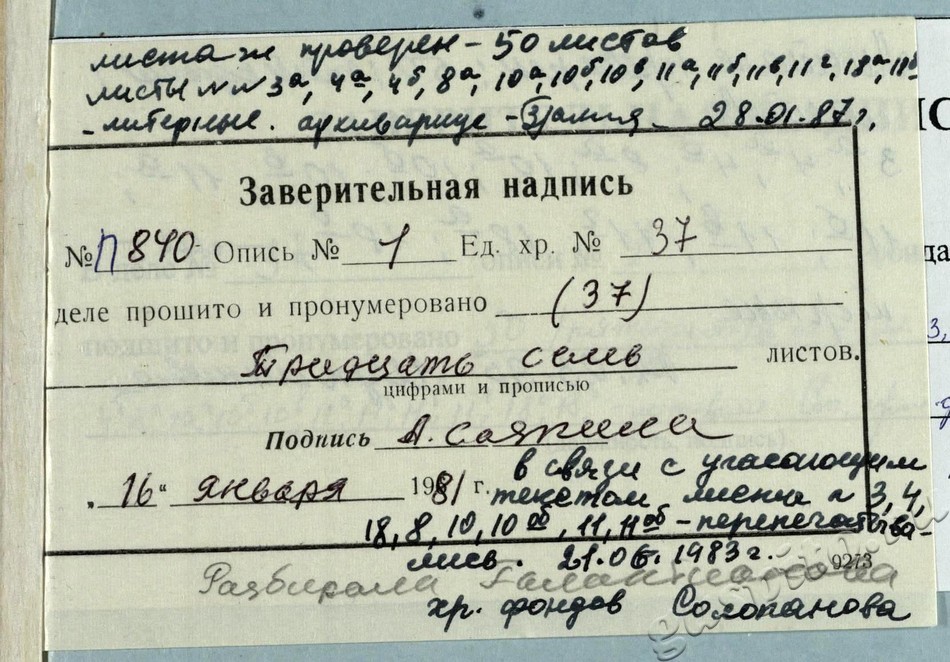 листаж проверен - 50 листов
листы №№ 3а, 4а, 4б, 8а, 10а, 10б, 10в, 11а, 11б, 11в, 11г, 18а, 18б
- литерные. архивариус - 28.01.87 г.
Заверительная надпись
№ П840 Опись № 1 Ед. хр. № 37
деле прошито и пронумеровано (37)
Тридцать семь листов.
цифрами и прописью
Подпись А. Саяпина
„16“ января 1981 г.
в связи с угасающим
текстом листы № 3, 4,
18, 8, 10, 10об, 11, 11об - перепечатыва-
лись. 21.06.1983 г.
9273
Разбирала
хр. фондов Солопанова